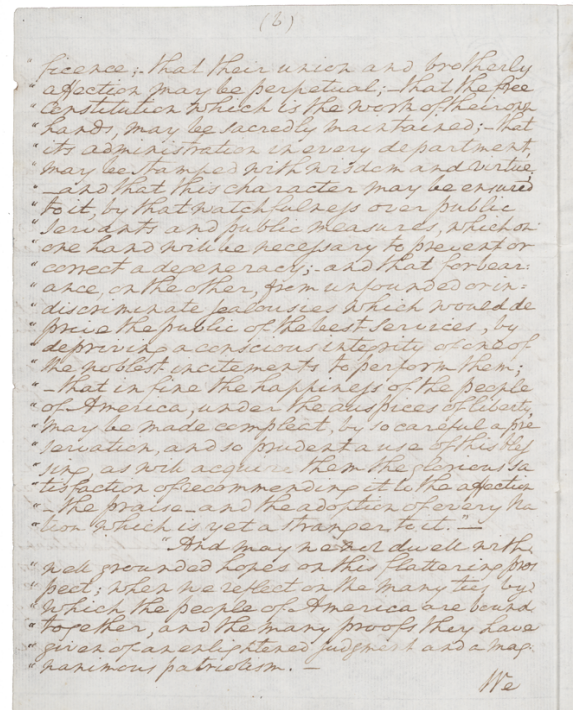 (8)
" ficence;- that their union and brotherly
" affection may be perpetual;- that the free
" Constitution which is the work of their own
" hands, may be sacredly maintained;- that
" its administration in every department,
" may be stamped with wisdom and virtue,
" - and that this character may be ensured
" to it, by that watchfulness over public
" servants and public measures, which on
" one hand will be necessary to prevent or
" correct a degeneracy;- and that forbear-
" ance, on the other, from unfounded or in-
" discriminate jealousies which would de
" prive the public of the best services, by
" depriving a conscious integrity of one of
" the noblest incitements to perform them;
" - that in fine the happiness of the people
" of America, under the auspices of liberty,
" may be made compleat, by so careful a pre
" servation, and so prudent a use of this bles
" sing, as will acquire them the glorious sa
" tisfaction of recommending it to the affection
" - the praise - and the adoption of every Na
" tion which is yet a stranger to it." -
"And may we not dwell with
" well grounded hopes on this flattering pros
" pect; when we reflect on the many ties by
" which the people of America are bound
" together, and the many proofs they have
" given of an enlightened judgment and a mag
" nanimous patriotism. -
We